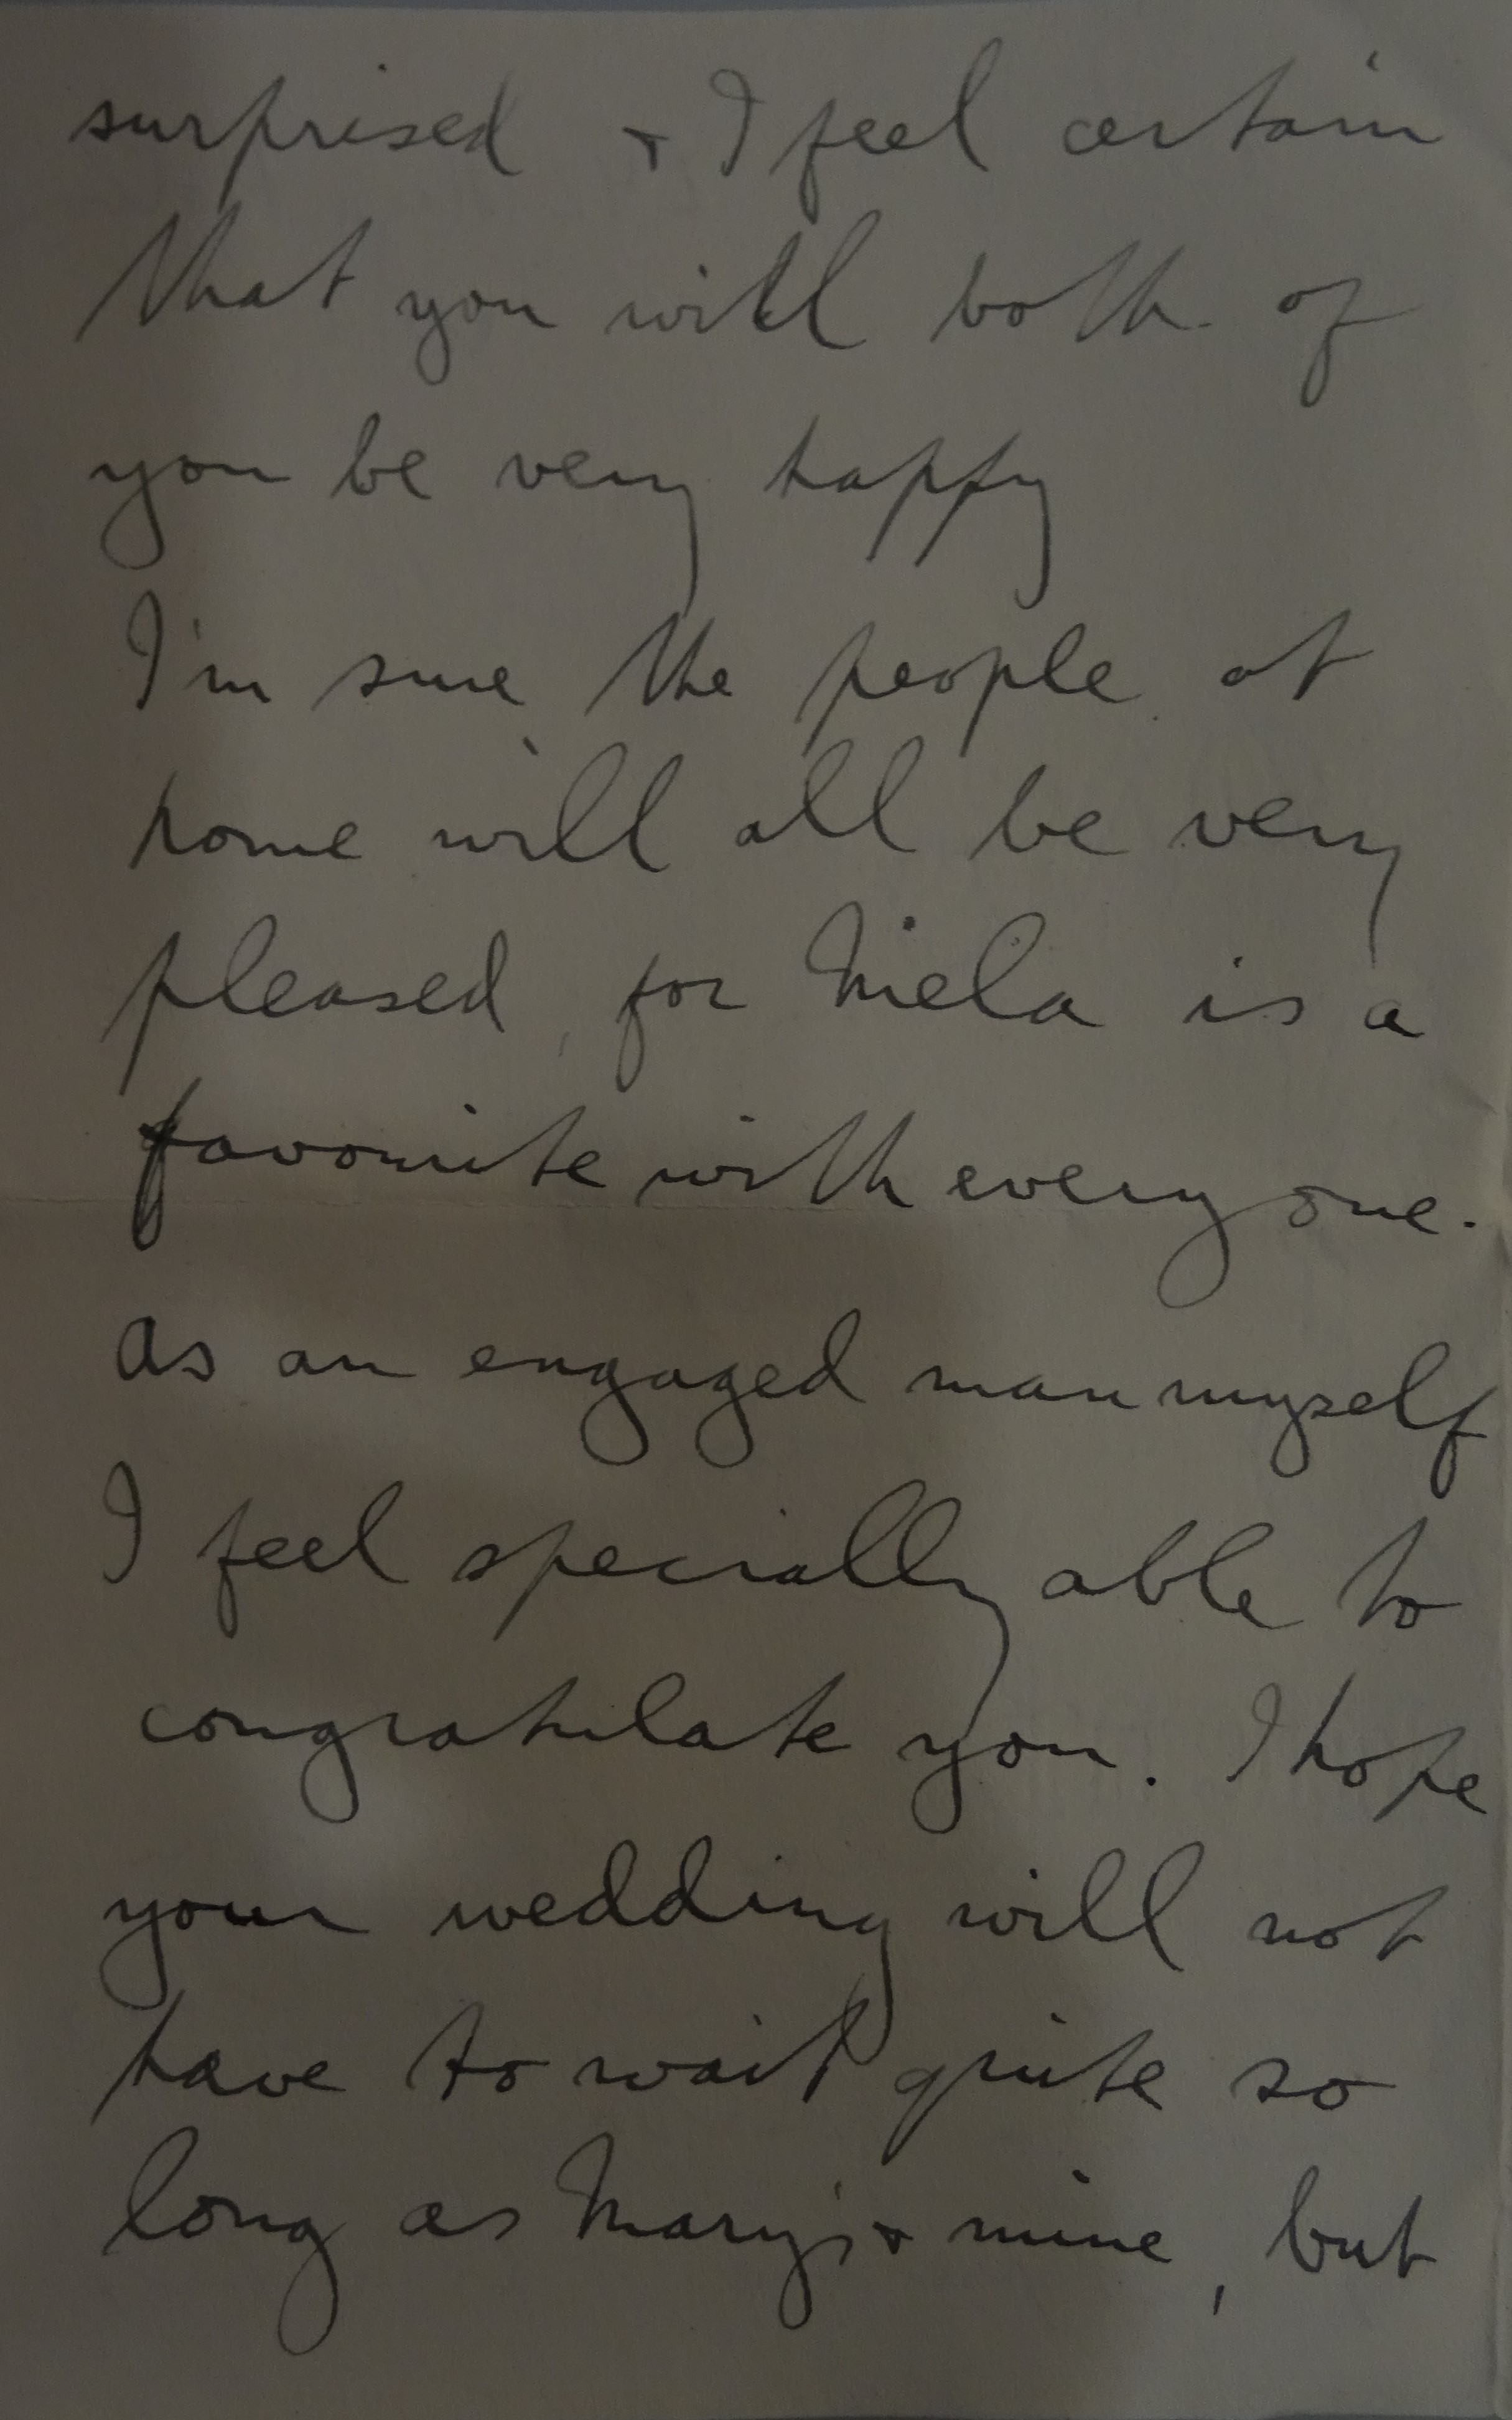 surprised + I feel certain
that you will both of
you be very happy
I'm sure the people at
home will all be very
pleased, for Miela is a
favourite with every one.
As an engaged man myself
I feel specially able to
congratulate you. I hope
your wedding will not
have to wait quite so
long as Mary's + mine, but